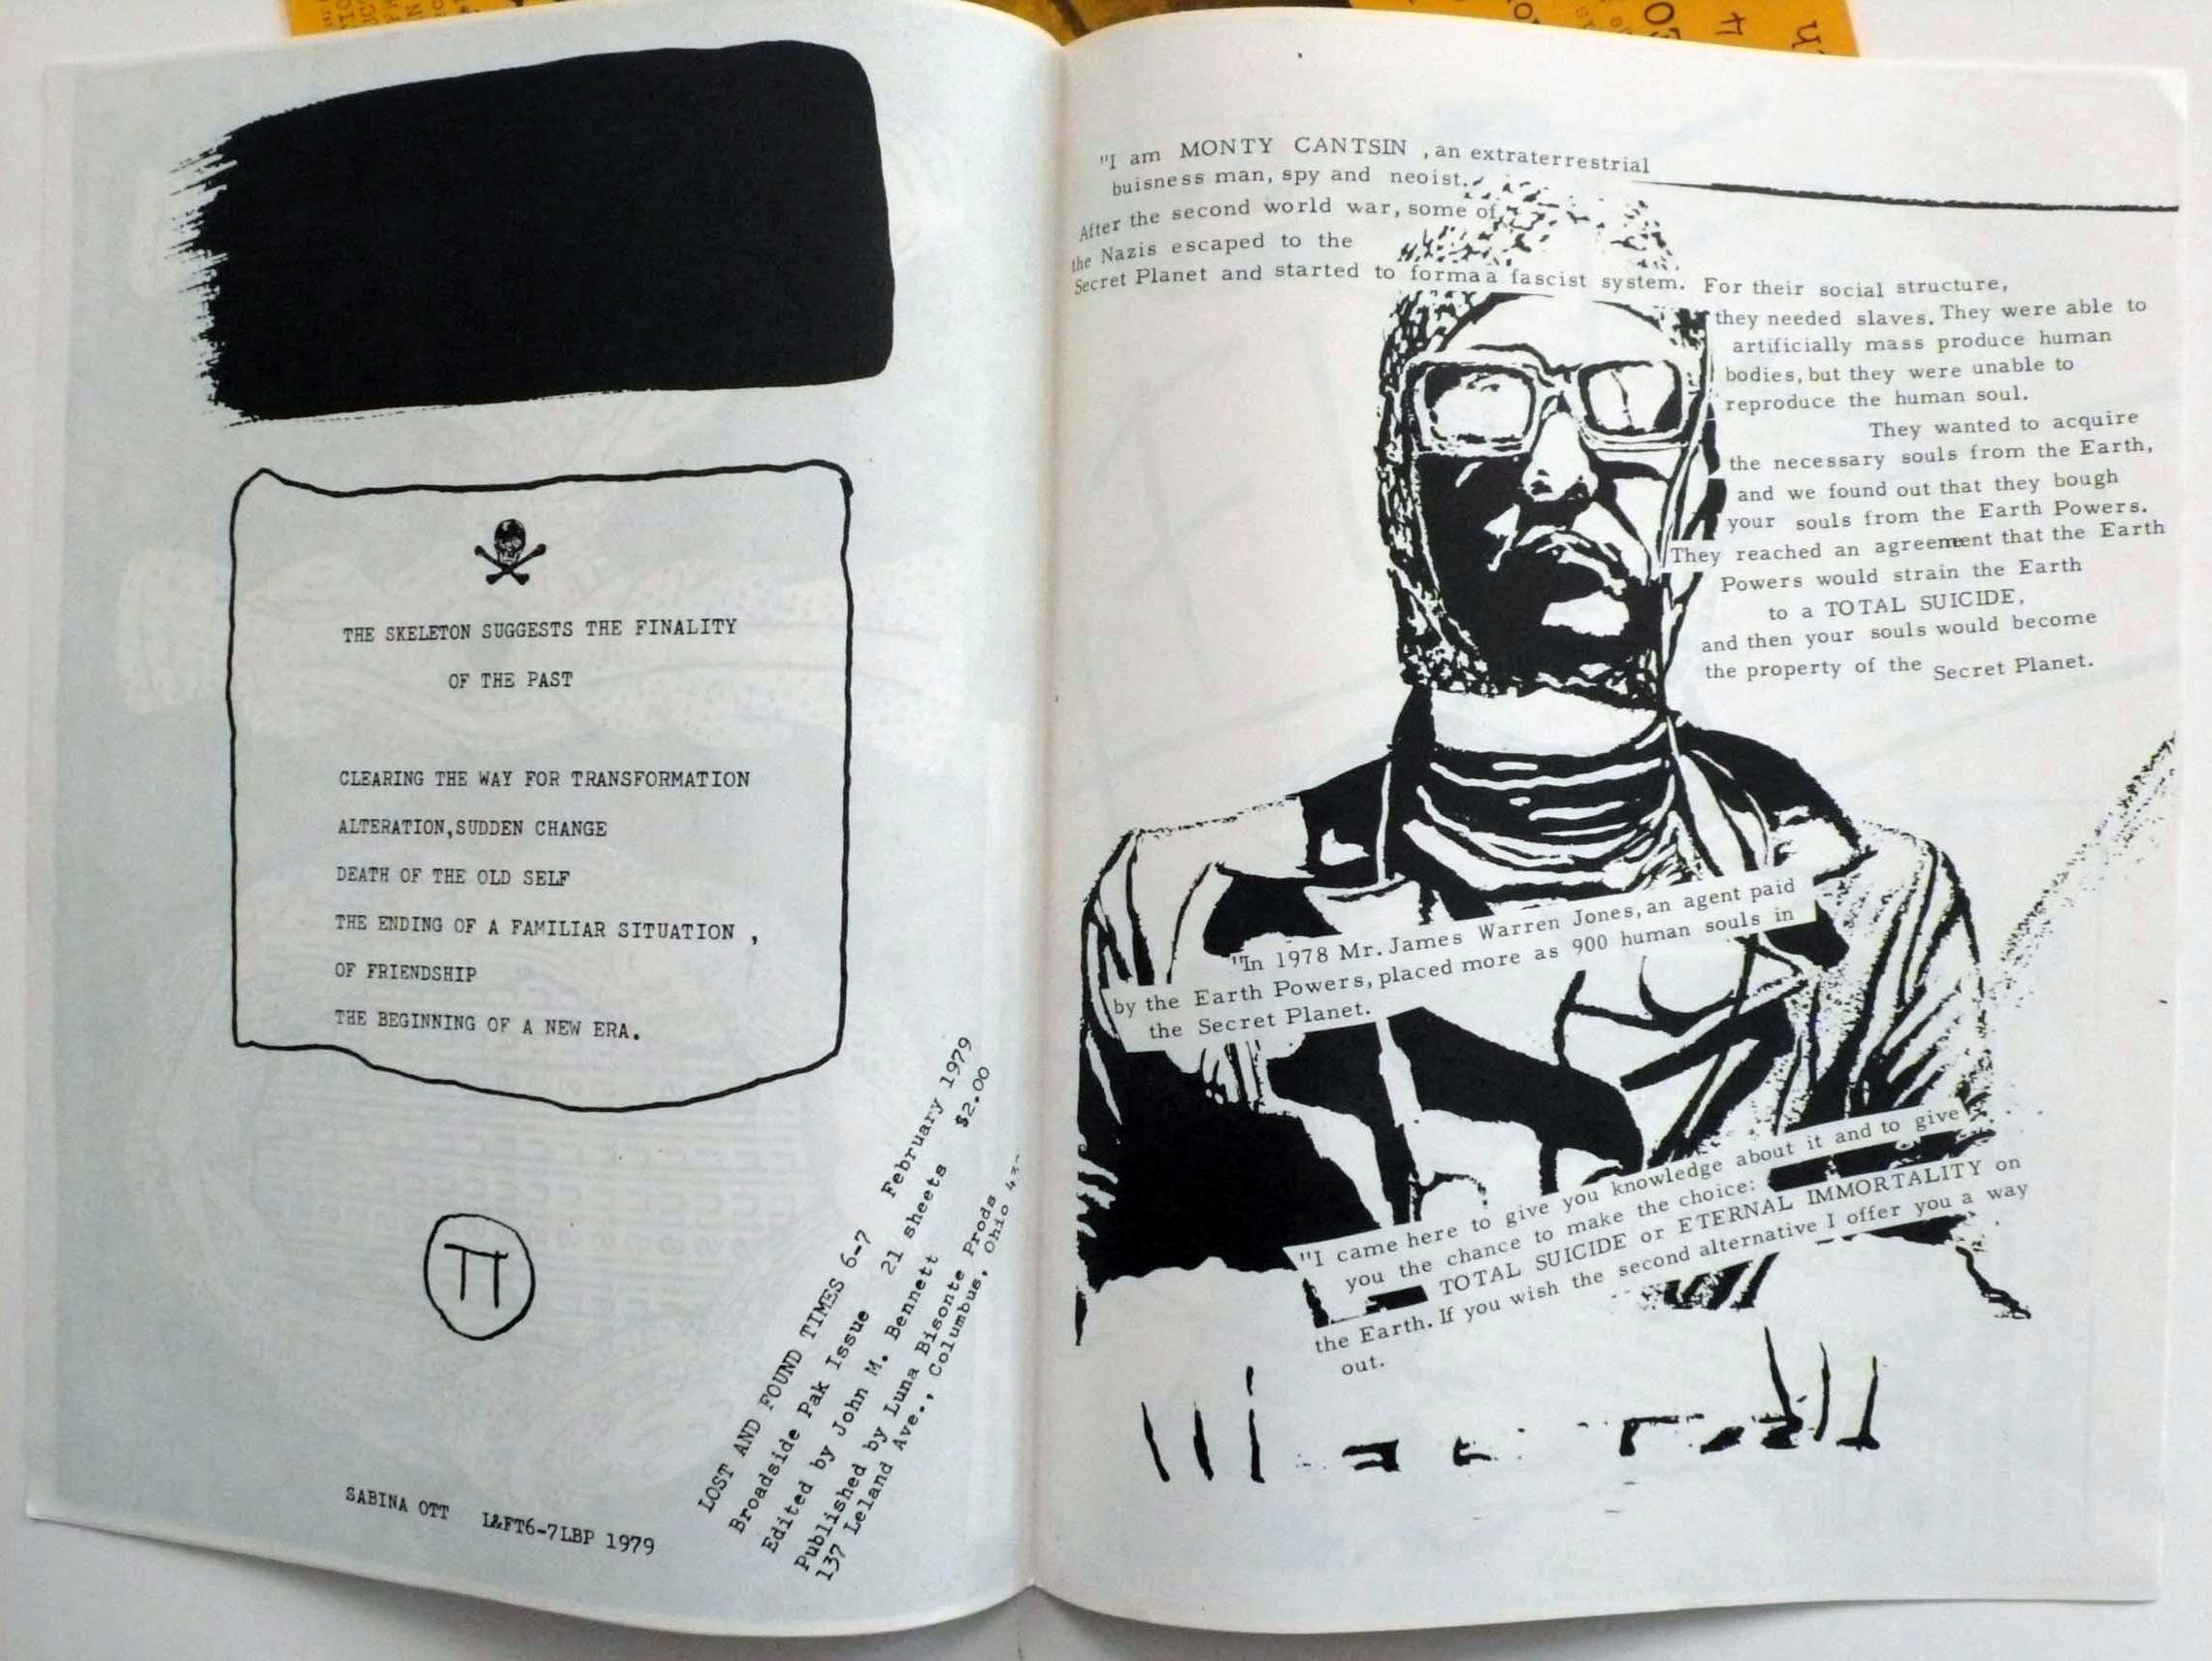 THE SKELETON SUGGESTS THE FINALITY
OF THE PAST
CLEARING THE WAY FOR TRANSFORMATION
ALTERATION,SUDDEN CHANGE
DEATH OF THE OLD SELF
THE ENDING OF A FAMILIAR SITUATION ,
OF FRIENDSHIP
THE BEGINNING OF A NEW ERA.
TT
SABINA OTT L&FT6-7LBP 1979
LOST AND FOUND TIMES 6-7 February 1979
Broadside Pak Issue 21 sheets $2.00
Edited by John M. Bennett
Published by Luna Bisonte Prods
137 Leland Ave., Columbus, Ohio
"I am MONTY CANTSIN ,an extraterrestrial
buisness man, spy and neoist.
After the second world war, some of
the Nazis escaped to the
Secret Planet and started to forma a fascist system. For their social structure,
they needed slaves. They were able to
artificially mass produce human
bodies, but they were unable to
reproduce the human soul.
They wanted to acquire
the necessary souls from the Earth,
and we found out that they bough
your souls from the Earth Powers.
They reached an agreement that the Earth
Powers would strain the Earth
to a TOTAL SUICIDE,
and then your souls would become
the property of the Secret Planet.
"In 1978 Mr. James Warren Jones, an agent paid
by the Earth Powers, placed more as 900 human souls in
the Secret Planet.
"I came here to give you knowledge about it and to give
you the chance to make the choice:
TOTAL SUICIDE or ETERNAL IMMORTALITY on
the Earth. If you wish the second alternative I offer you a way
out.